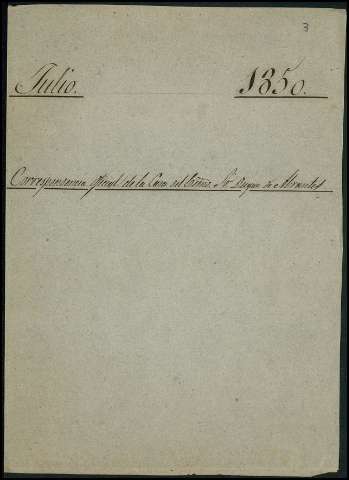 3
Julio. 1850.
Correspondencia oficial de la Casa del Excmo. Sr. Duque de Abrantes